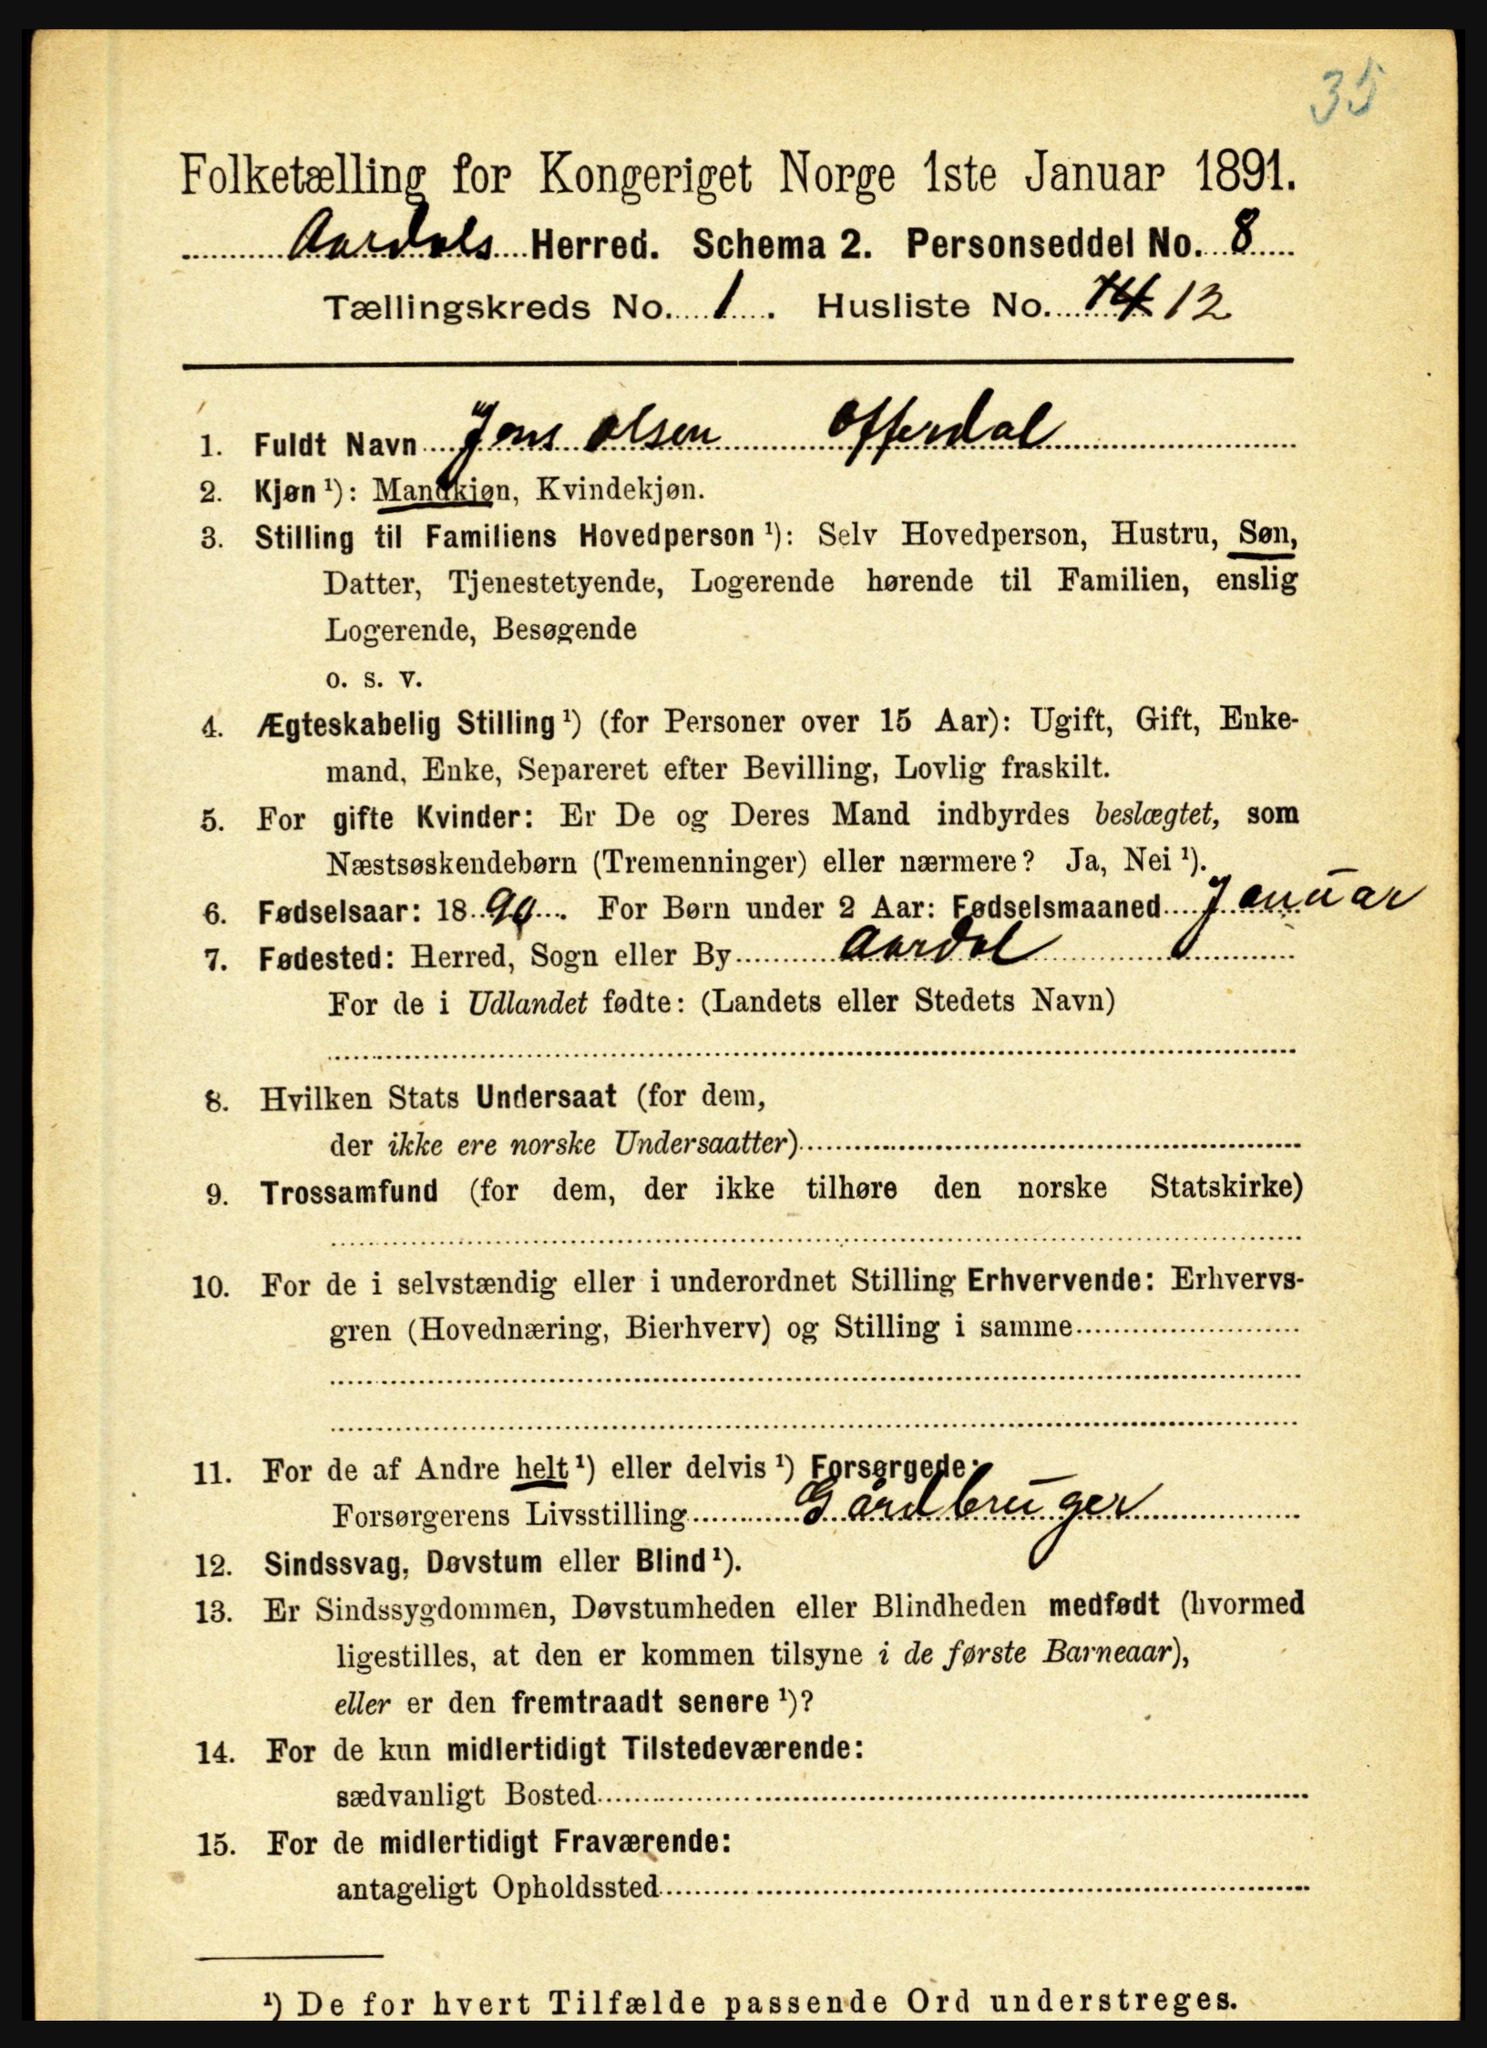 35
Folketælling for Kongeriget Norge 1ste Januar 1891.
Aardals Herred. Schema 2. Personseddel No. 8
Tællingskreds No. 1. Husliste No. 14 12
1. Fuldt Navn Jens Olsen Offerdal
2. Kjøn ¹): Mandkjøn, Kvindekjøn.
3. Stilling til Familiens Hovedperson ¹): Selv Hovedperson, Hustru, Søn,
Datter, Tjenestetyende, Logerende hørende til Familien, enslig
Logerende, Besøgende
o. s. v.
4. Ægteskabelig Stilling ¹) (for Personer over 15 Aar): Ugift, Gift, Enke-
mand, Enke, Separeret efter Bevilling, Lovlig fraskilt.
5. For gifte Kvinder: Er De og Deres Mand indbyrdes beslægtet, som
Næstsøskendebørn (Tremenninger) eller nærmere? Ja, Nei ¹).
6. Fødselsaar: 1890. For Børn under 2 Aar: Fødselsmaaned Januar
7. Fødested: Herred, Sogn eller By Aardal
For de i Udlandet fødte: (Landets eller Stedets Navn)
8. Hvilken Stats Undersaat (for dem,
der ikke ere norske Undersaatter)
9. Trossamfund (for dem, der ikke tilhøre den norske Statskirke)
10. For de i selvstændig eller i underordnet Stilling Erhvervende: Erhvervs-
gren (Hovednæring, Bierhverv) og Stilling i samme
11. For de af Andre helt ¹) eller delvis ¹) Forsørgede:
Forsørgerens Livsstilling Gårdbruger
12. Sindssvag, Døvstum eller Blind ¹).
13. Er Sindssygdommen, Døvstumheden eller Blindheden medfødt (hvormed
ligestilles, at den er kommen tilsyne i de første Barneaar),
eller er den fremtraadt senere ¹)?
14. For de kun midlertidigt Tilstedeværende:
sædvanligt Bosted
15. For de midlertidigt Fraværende:
antageligt Opholdssted
¹) De for hvert Tilfælde passende Ord understreges.